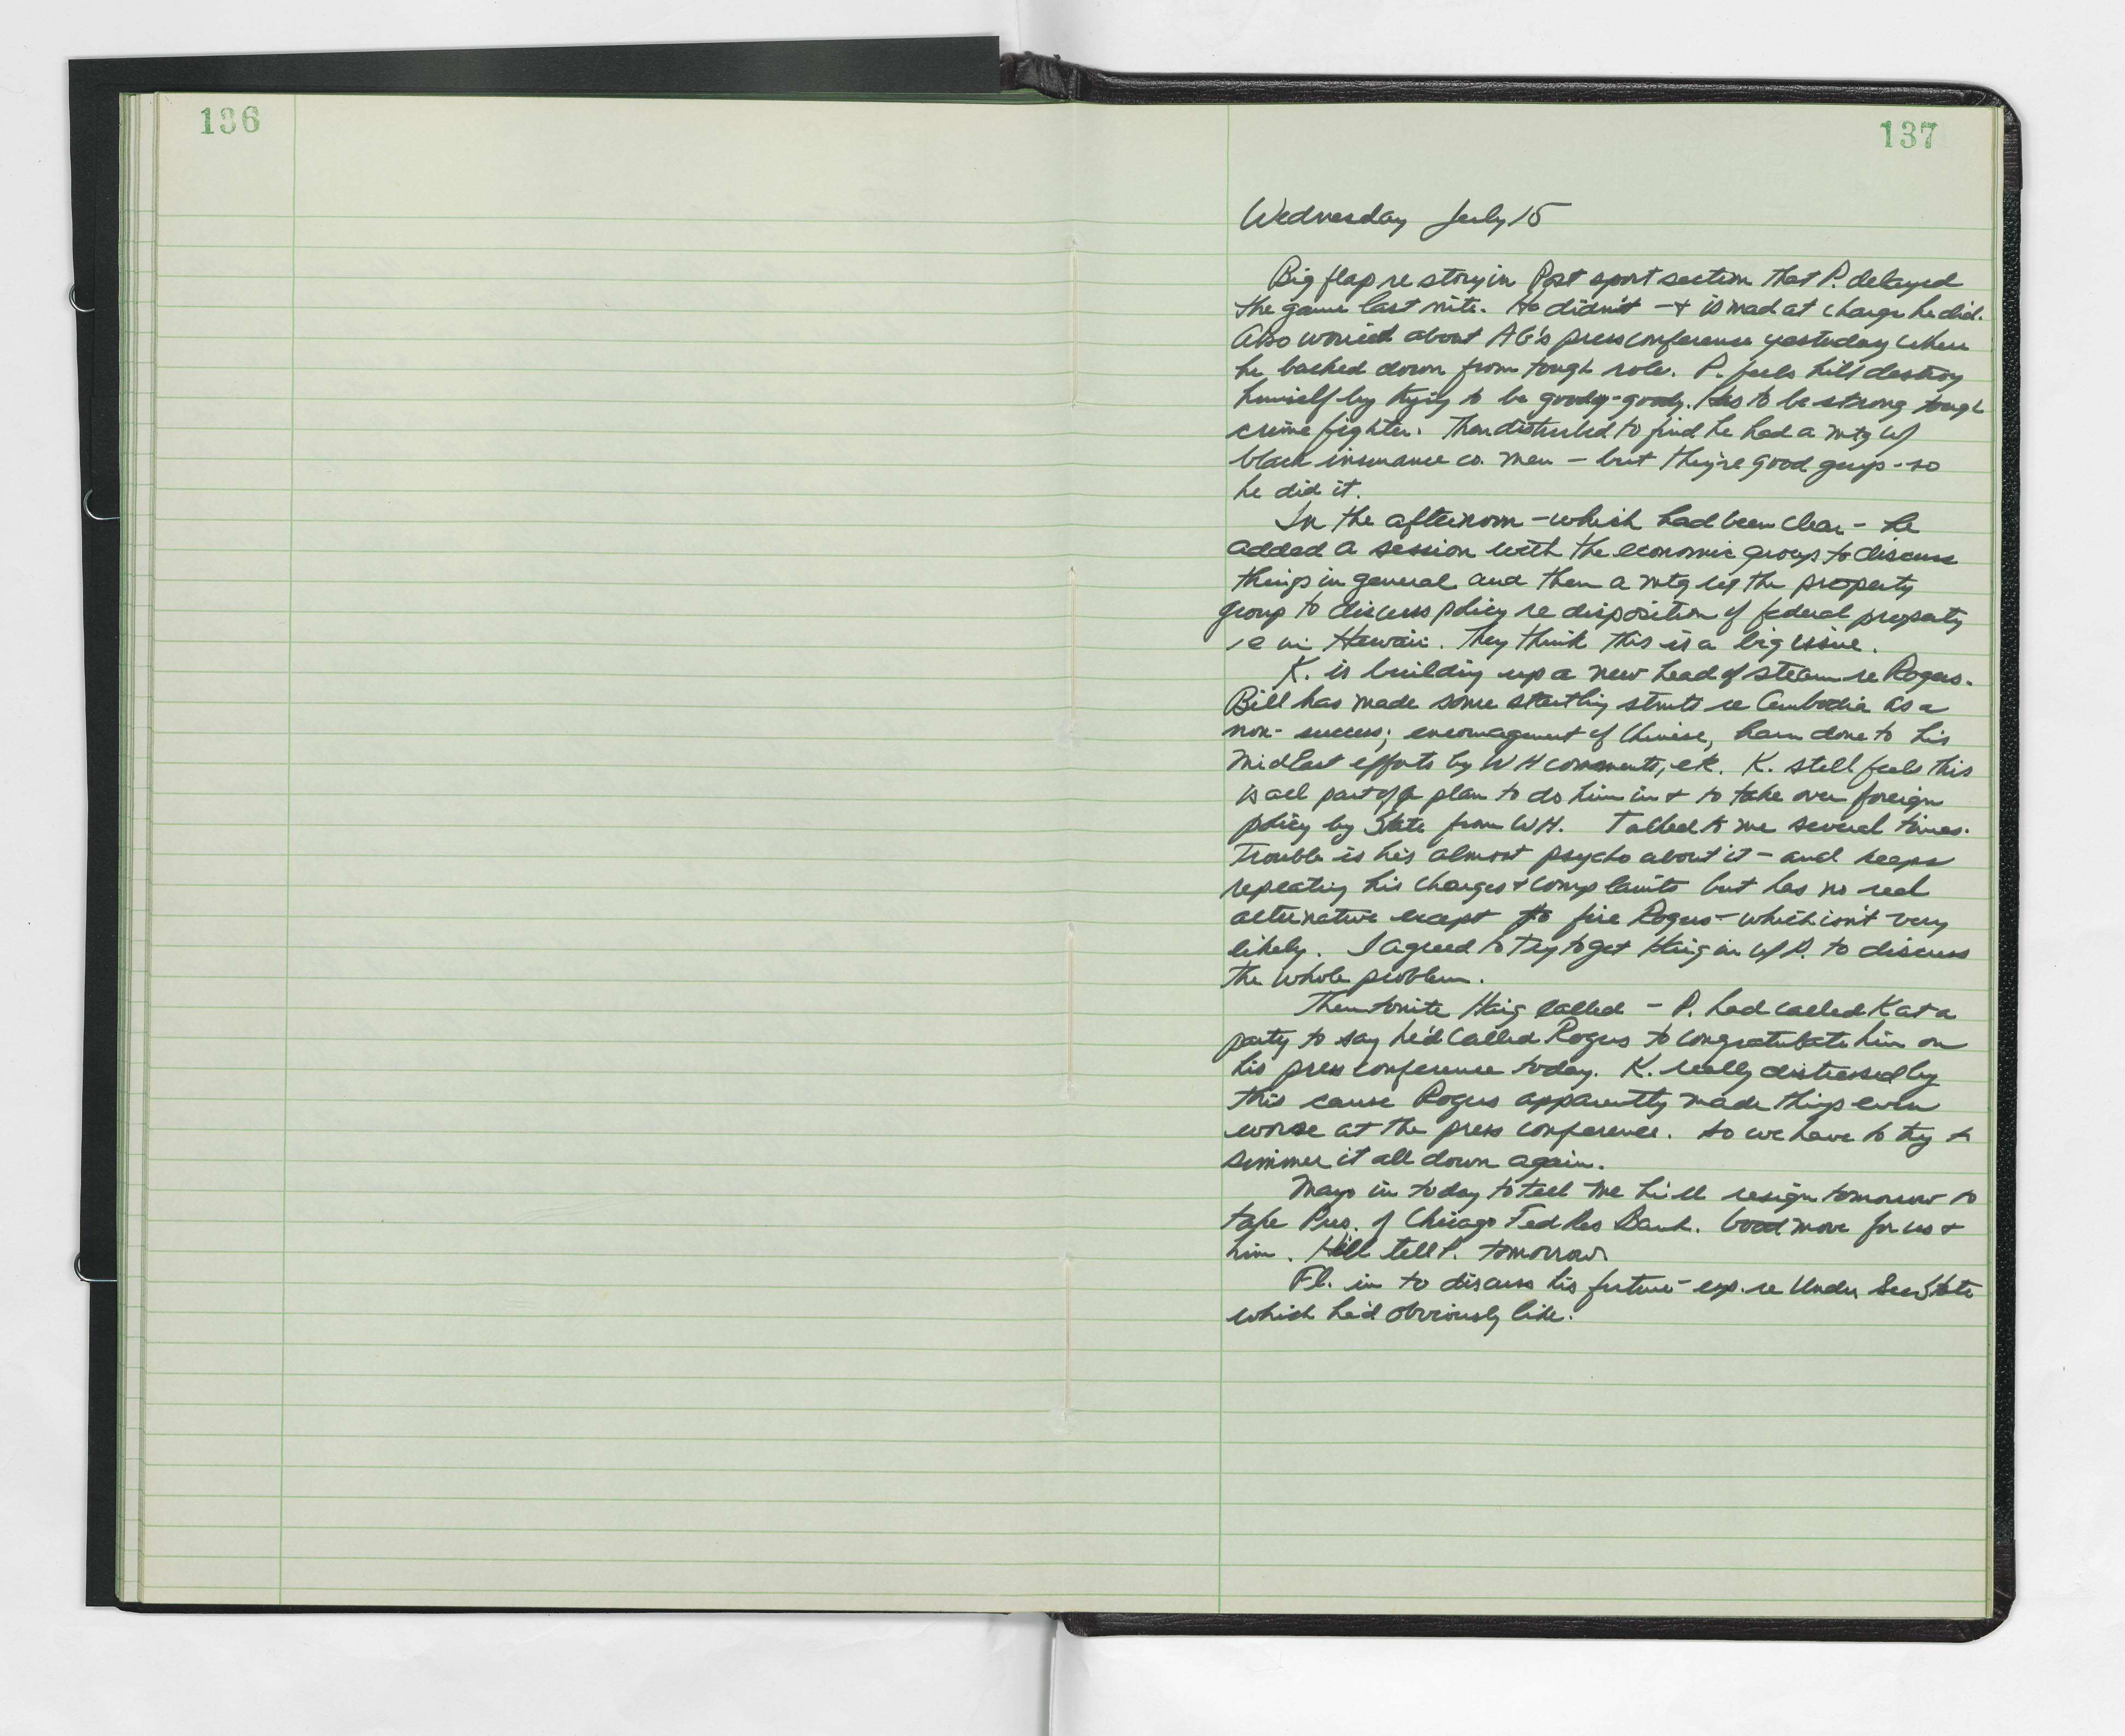 136
137
Wednesday July 15
Big flap re story in Post sport section that P. delayed
the game last nite. He didn't - & is mad at charge he did.
Also worried about AG's press conference yesterday where
he backed down from tough role. P. feels he'll destroy
himself by trying to be goody-goody. Has to be strong tough
crime fighter. Then disturbed to find he had a mtg w/
black insurance co. men - but they're good guys - so
he did it.
In the afternoon - which had been clear - he
added a session with the economic group to discuss
things in general and then a mtg w/ the property
group to discuss policy re disposition of federal property
ie in Hawaii. They think this is a big issue.
K. is building up a new head of steam re Rogers.
Bill has made some startling stmts re Cambodia as a
non-success; encouragement of Chinese, harm done to his
MidEast efforts by WH comments, etc. K. still feels this
is all part of a plan to do him in & to take over foreign
policy by State from WH. Talked to me several times.
Trouble is he's almost psycho about it - and keeps
repeating his charges & complaints but has no real
alternative except to fire Rogers - which isn't very
likely. I agreed to try to get Haig in w/ P. to discuss
the whole problem.
Then tonite Haig called - P. had called K at a
party to say he'd called Rogers to congratulate him on
his press conference today. K. really distressed by
this cause Rogers apparently made things even
worse at the press conference. So we have to try to
simmer it all down again.
Mayo in today to tell me he'll resign tomorrow to
take Pres. of Chicago Fed Res Bank. Good move for us &
him. He'll tell P. tomorrow.
Fl. in to discuss his future - esp. re Under Sec State
which he'd obviously like.